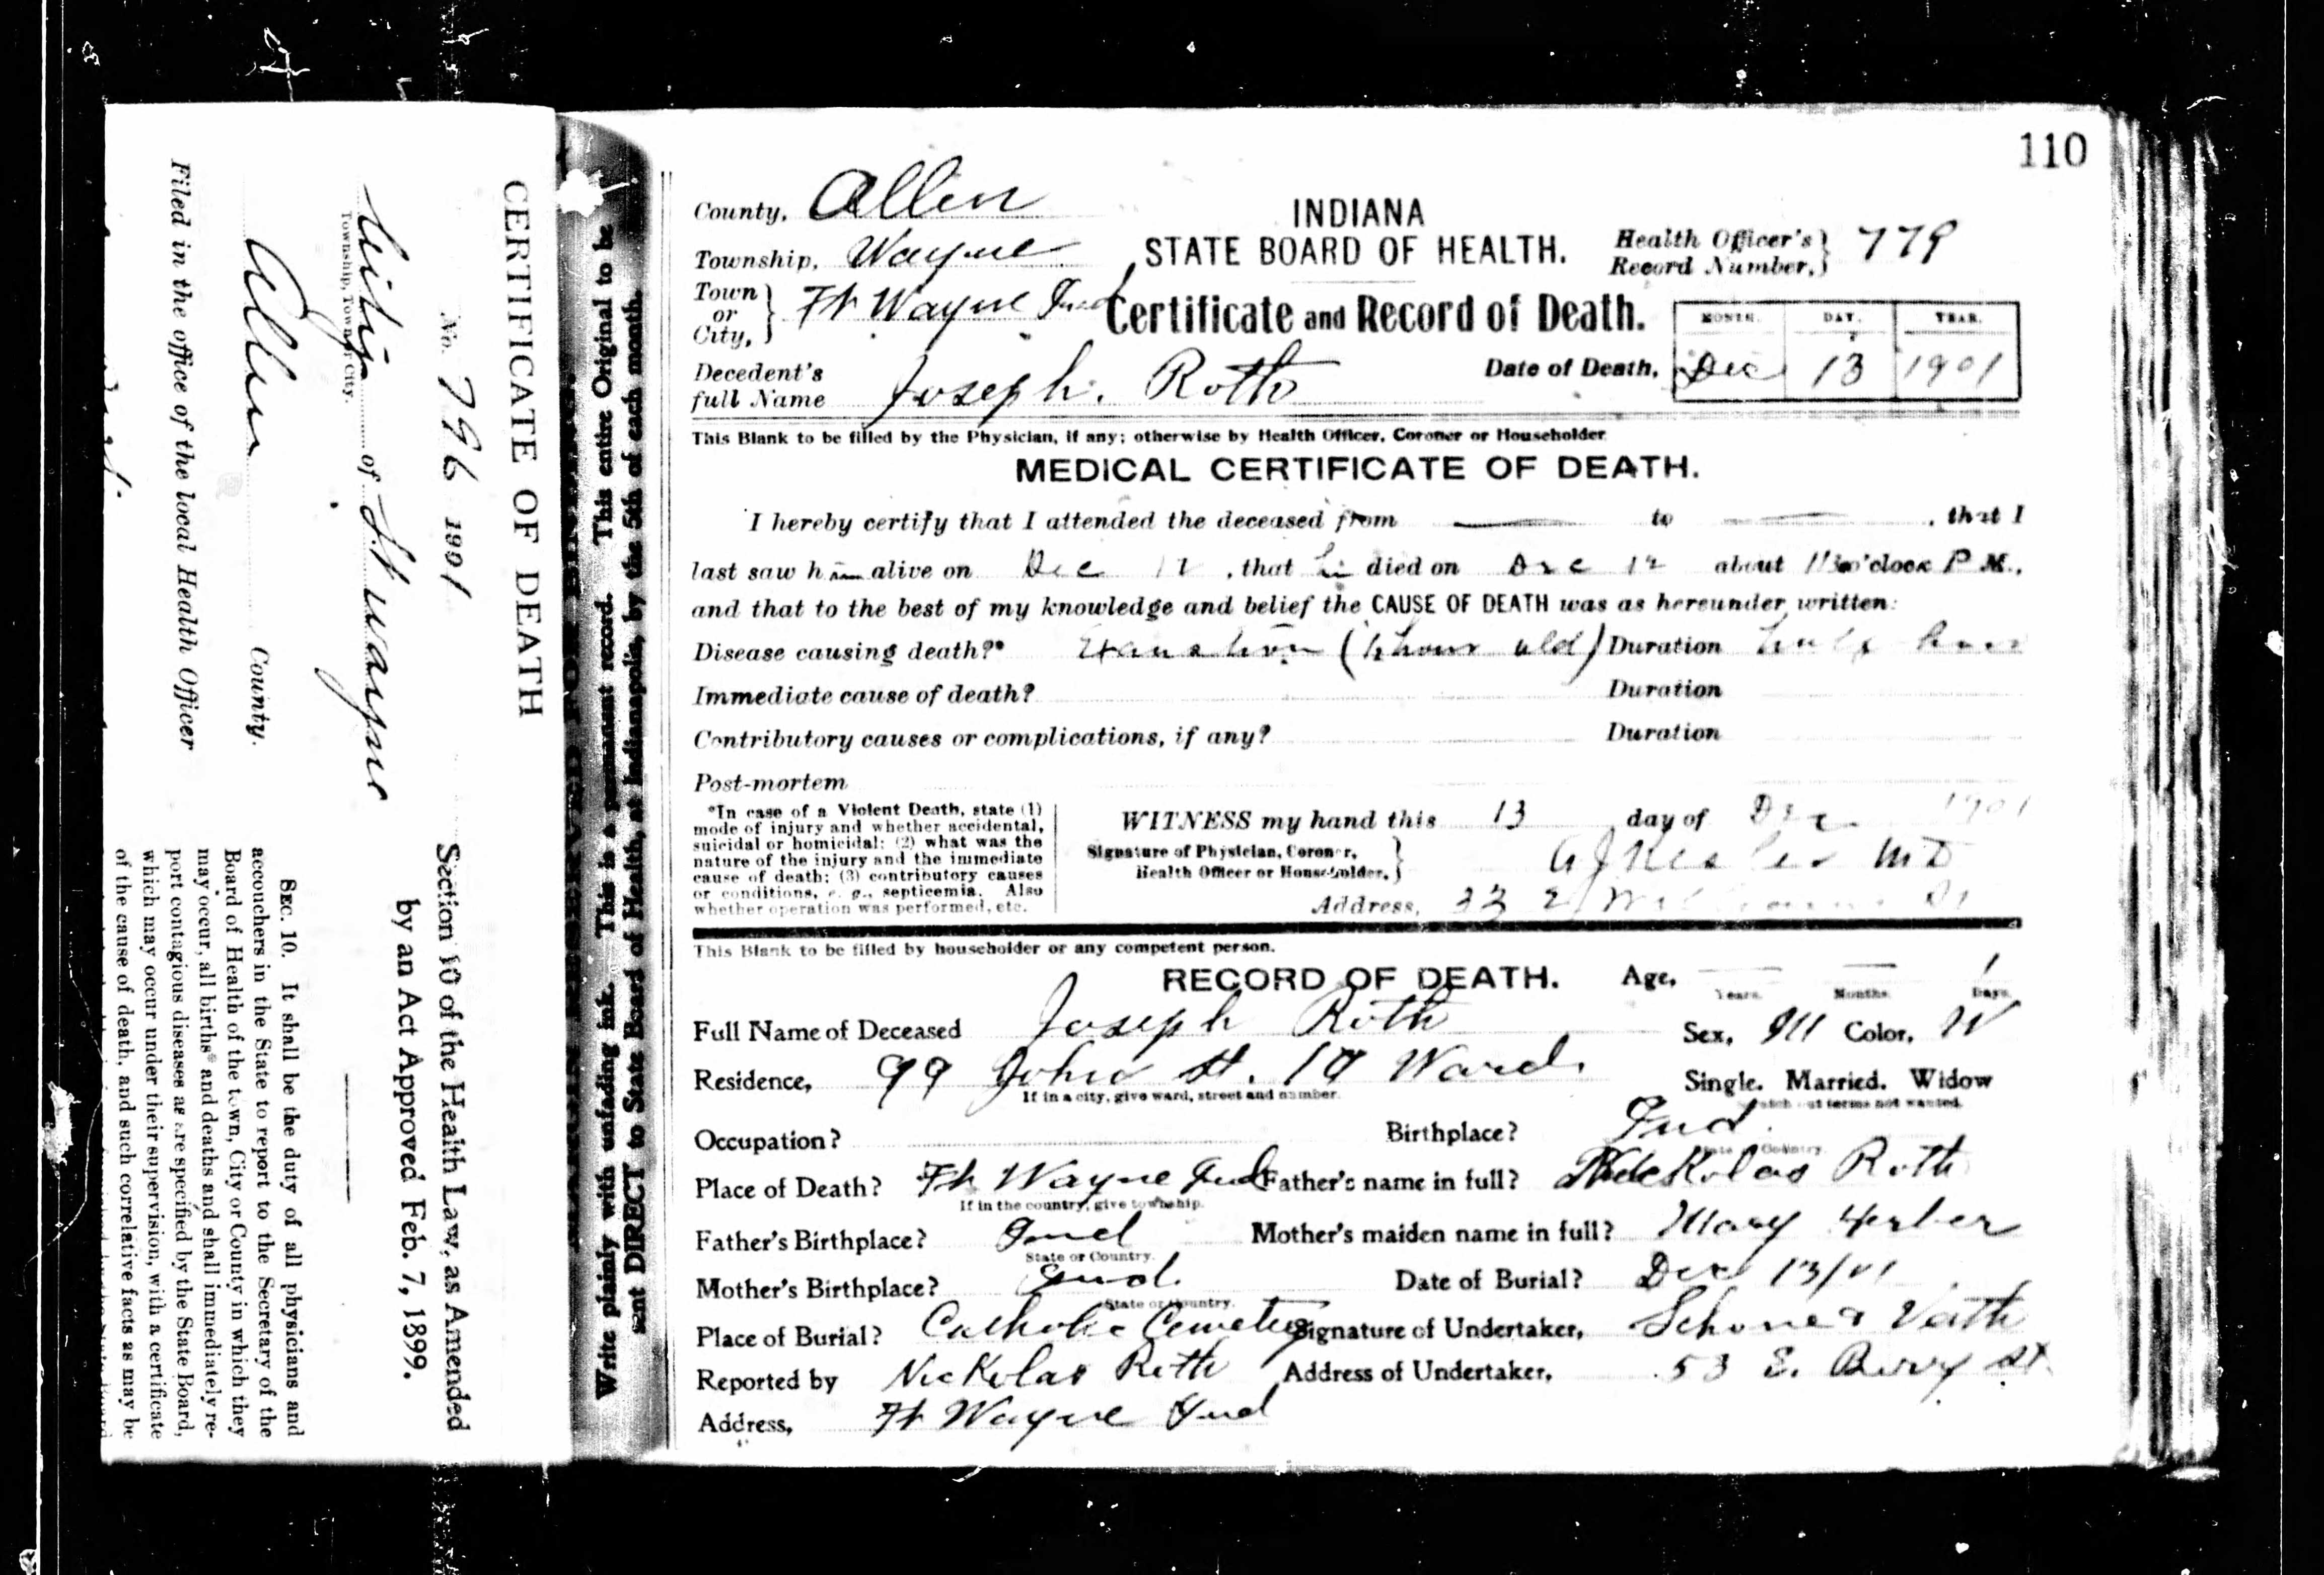 110
County, Allen
INDIANA
Township, Wayne
STATE BOARD OF HEALTH.
Health Officer's Record Number, 779
Town or City, Ft Wayne Ind
Certificate and Record of Death.
MONTH. DAY. YEAR.
Decedent's full Name Joseph. Roth
Date of Death, Dec 13 1901
This Blank to be filled by the Physician, if any; otherwise by Health Officer, Coroner or Householder
MEDICAL CERTIFICATE OF DEATH.
I hereby certify that I attended the deceased from — to — , that I
last saw him alive on Dec 12, that he died on Dec 12 about o'clock P M.,
and that to the best of my knowledge and belief the CAUSE OF DEATH was as hereunder written:
Disease causing death?* (½ hour old) Duration half hour
Immediate cause of death? Duration
Contributory causes or complications, if any? Duration
Post-mortem
*In case of a Violent Death, state (1)
mode of injury and whether accidental,
suicidal or homicidal; (2) what was the
nature of the injury and the immediate
cause of death; (3) contributory causes
or conditions, e. g., septicemia. Also
whether operation was performed, etc.
WITNESS my hand this 13 day of Dec 1901
Signature of Physician, Coroner,
Health Officer or Householder, Kesler MD
Address, 33 E St
This Blank to be filled by householder or any competent person.
RECORD OF DEATH. Age, — Years. — Months. 1 Days.
Full Name of Deceased Joseph Roth Sex, M Color, W
Residence, 99 John St. Ward Single. Married. Widow
If in a city, give ward, street and number.
Occupation? Birthplace? Ind.
State or Country.
Place of Death? Ft Wayne Ind Father's name in full? Nickolas Roth
If in the country, give township.
Father's Birthplace? Ind Mother's maiden name in full? Mary
State or Country.
Mother's Birthplace? Ind. Date of Burial? Dec 13/01
State or Country.
Place of Burial? Catholic Cemetery Signature of Undertaker, Schone & Vaith
Reported by Nickolas Roth Address of Undertaker, 53 E. Berry St
Address, Ft Wayne Ind
Write plainly with unfading ink. This is a permanent record. This entire Original to be
sent DIRECT to State Board of Health, at Indianapolis, by the 5th of each month.
CERTIFICATE OF DEATH
No. 796 1901
City of Ft Wayne
Township, Town or City.
Allen County.
Filed in the office of the local Health Officer
Section 10 of the Health Law, as Amended
by an Act Approved Feb. 7, 1899.
SEC. 10. It shall be the duty of all physicians and
accouchers in the State to report to the Secretary of the
Board of Health of the town, City or County in which they
may occur, all births* and deaths and shall immediately re-
port contagious diseases as are specified by the State Board,
which may occur under their supervision, with a certificate
of the cause of death, and such correlative facts as may be